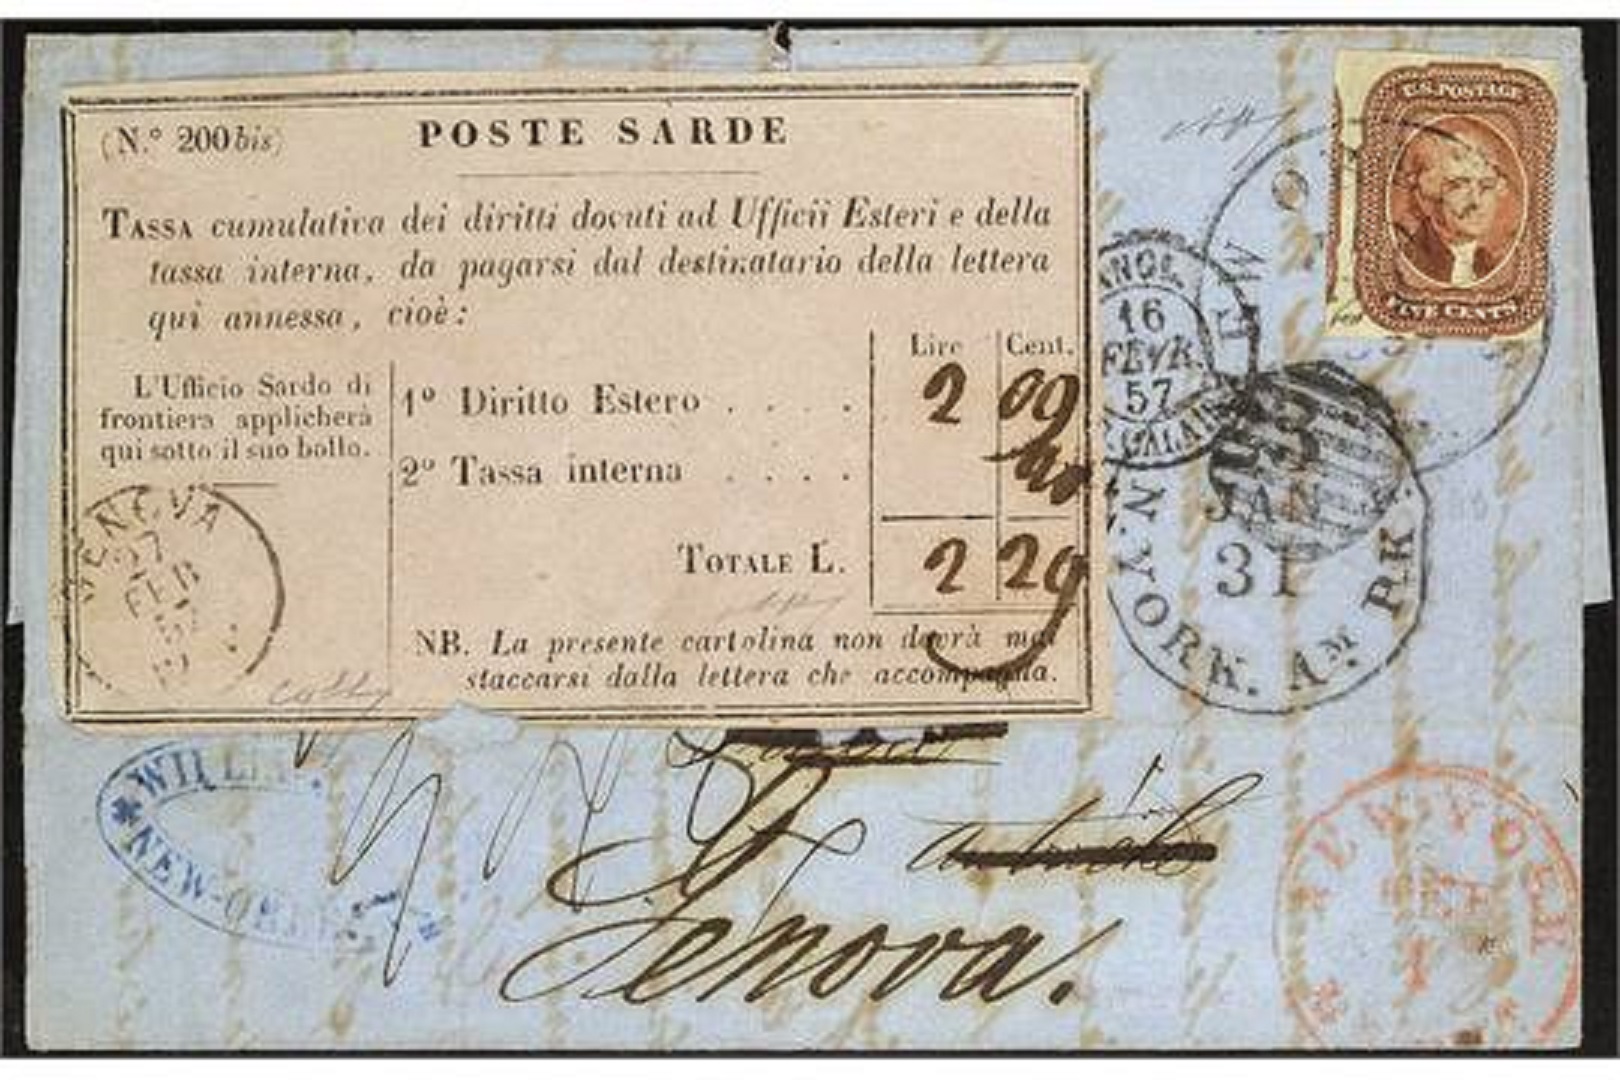 (N.° 200 bis)
POSTE SARDE
TASSA cumulativa dei diritti dovuti ad Ufficii Esteri e della
tassa interna, da pagarsi dal destinatario della lettera
qui annessa, cioè:
Lire Cent.
L'Ufficio Sardo di
frontiera applicherà
qui sotto il suo bollo.
1° Diritto Estero . . . . 2 09
2° Tassa interna . . . .
TOTALE L. 2 29
NB. La presente cartolina non dovrà mai
staccarsi dalla lettera che accompagna.
GENOVA
27
FEB
U.S. POSTAGE
FIVE CENTS
ANGL.
16
FEVR.
57
CALAIS
JAN
31
N. YORK. AM. PK.
NEW
Genova.
NEW YORK